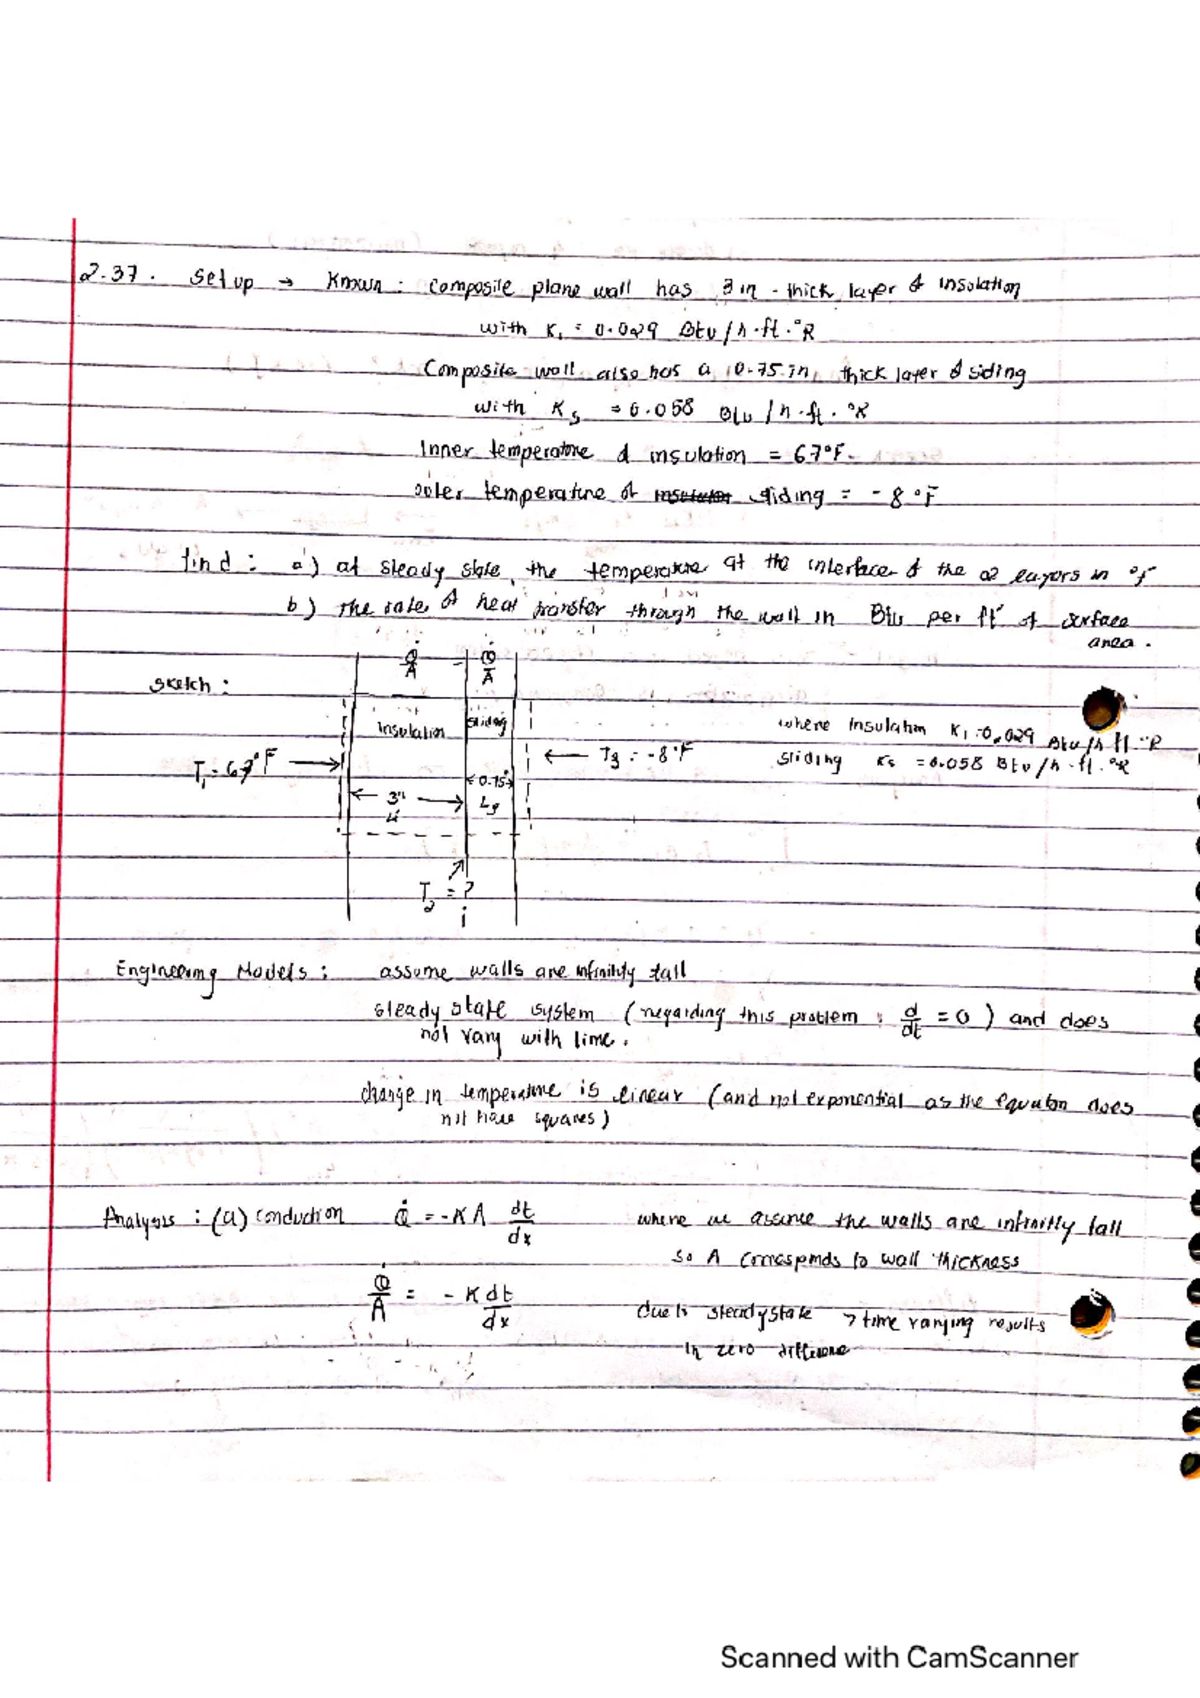 2.37. Set up → Known: composite plane wall has 3 in - thick layer of insulation
with K₁ = 0.029 Btu/h·ft·°R
Composite wall also has a 0.75 in, thick layer of siding
with Ks = 0.058 Btu/h·ft·°R
Inner temperature of insulation = 67°F.
outer temperature of siding = -8°F
find: a) at steady state, the temperature at the interface of the 2 layers in °F
b) the rate of heat transfer through the wall in Btu per ft² of surface
area.
Sketch:
Q̇/A = Q̇/A
insulation siding
T₁ = 67°F → ← T₃ = -8°F
where insulation K₁ = 0.029 Btu/h·ft·°R
sliding Ks = 0.058 Btu/h·ft·°R
← 3" → 0.75"
Li Ls
T₂ = ?
i
Engineering Models: assume walls are infinitily tall
steady state system (regarding this problem : d/dt = 0) and does
not vary with time.
change in temperature is linear (and not exponential as the equation does
not have squares)
Analysis: (a) conduction Q̇ = -KA dt/dx where we assume the walls are infinitly tall
so A corresponds to wall thickness
Q̇/A = -K dt/dx due to steady state → time varying results
in zero difference
Scanned with CamScanner